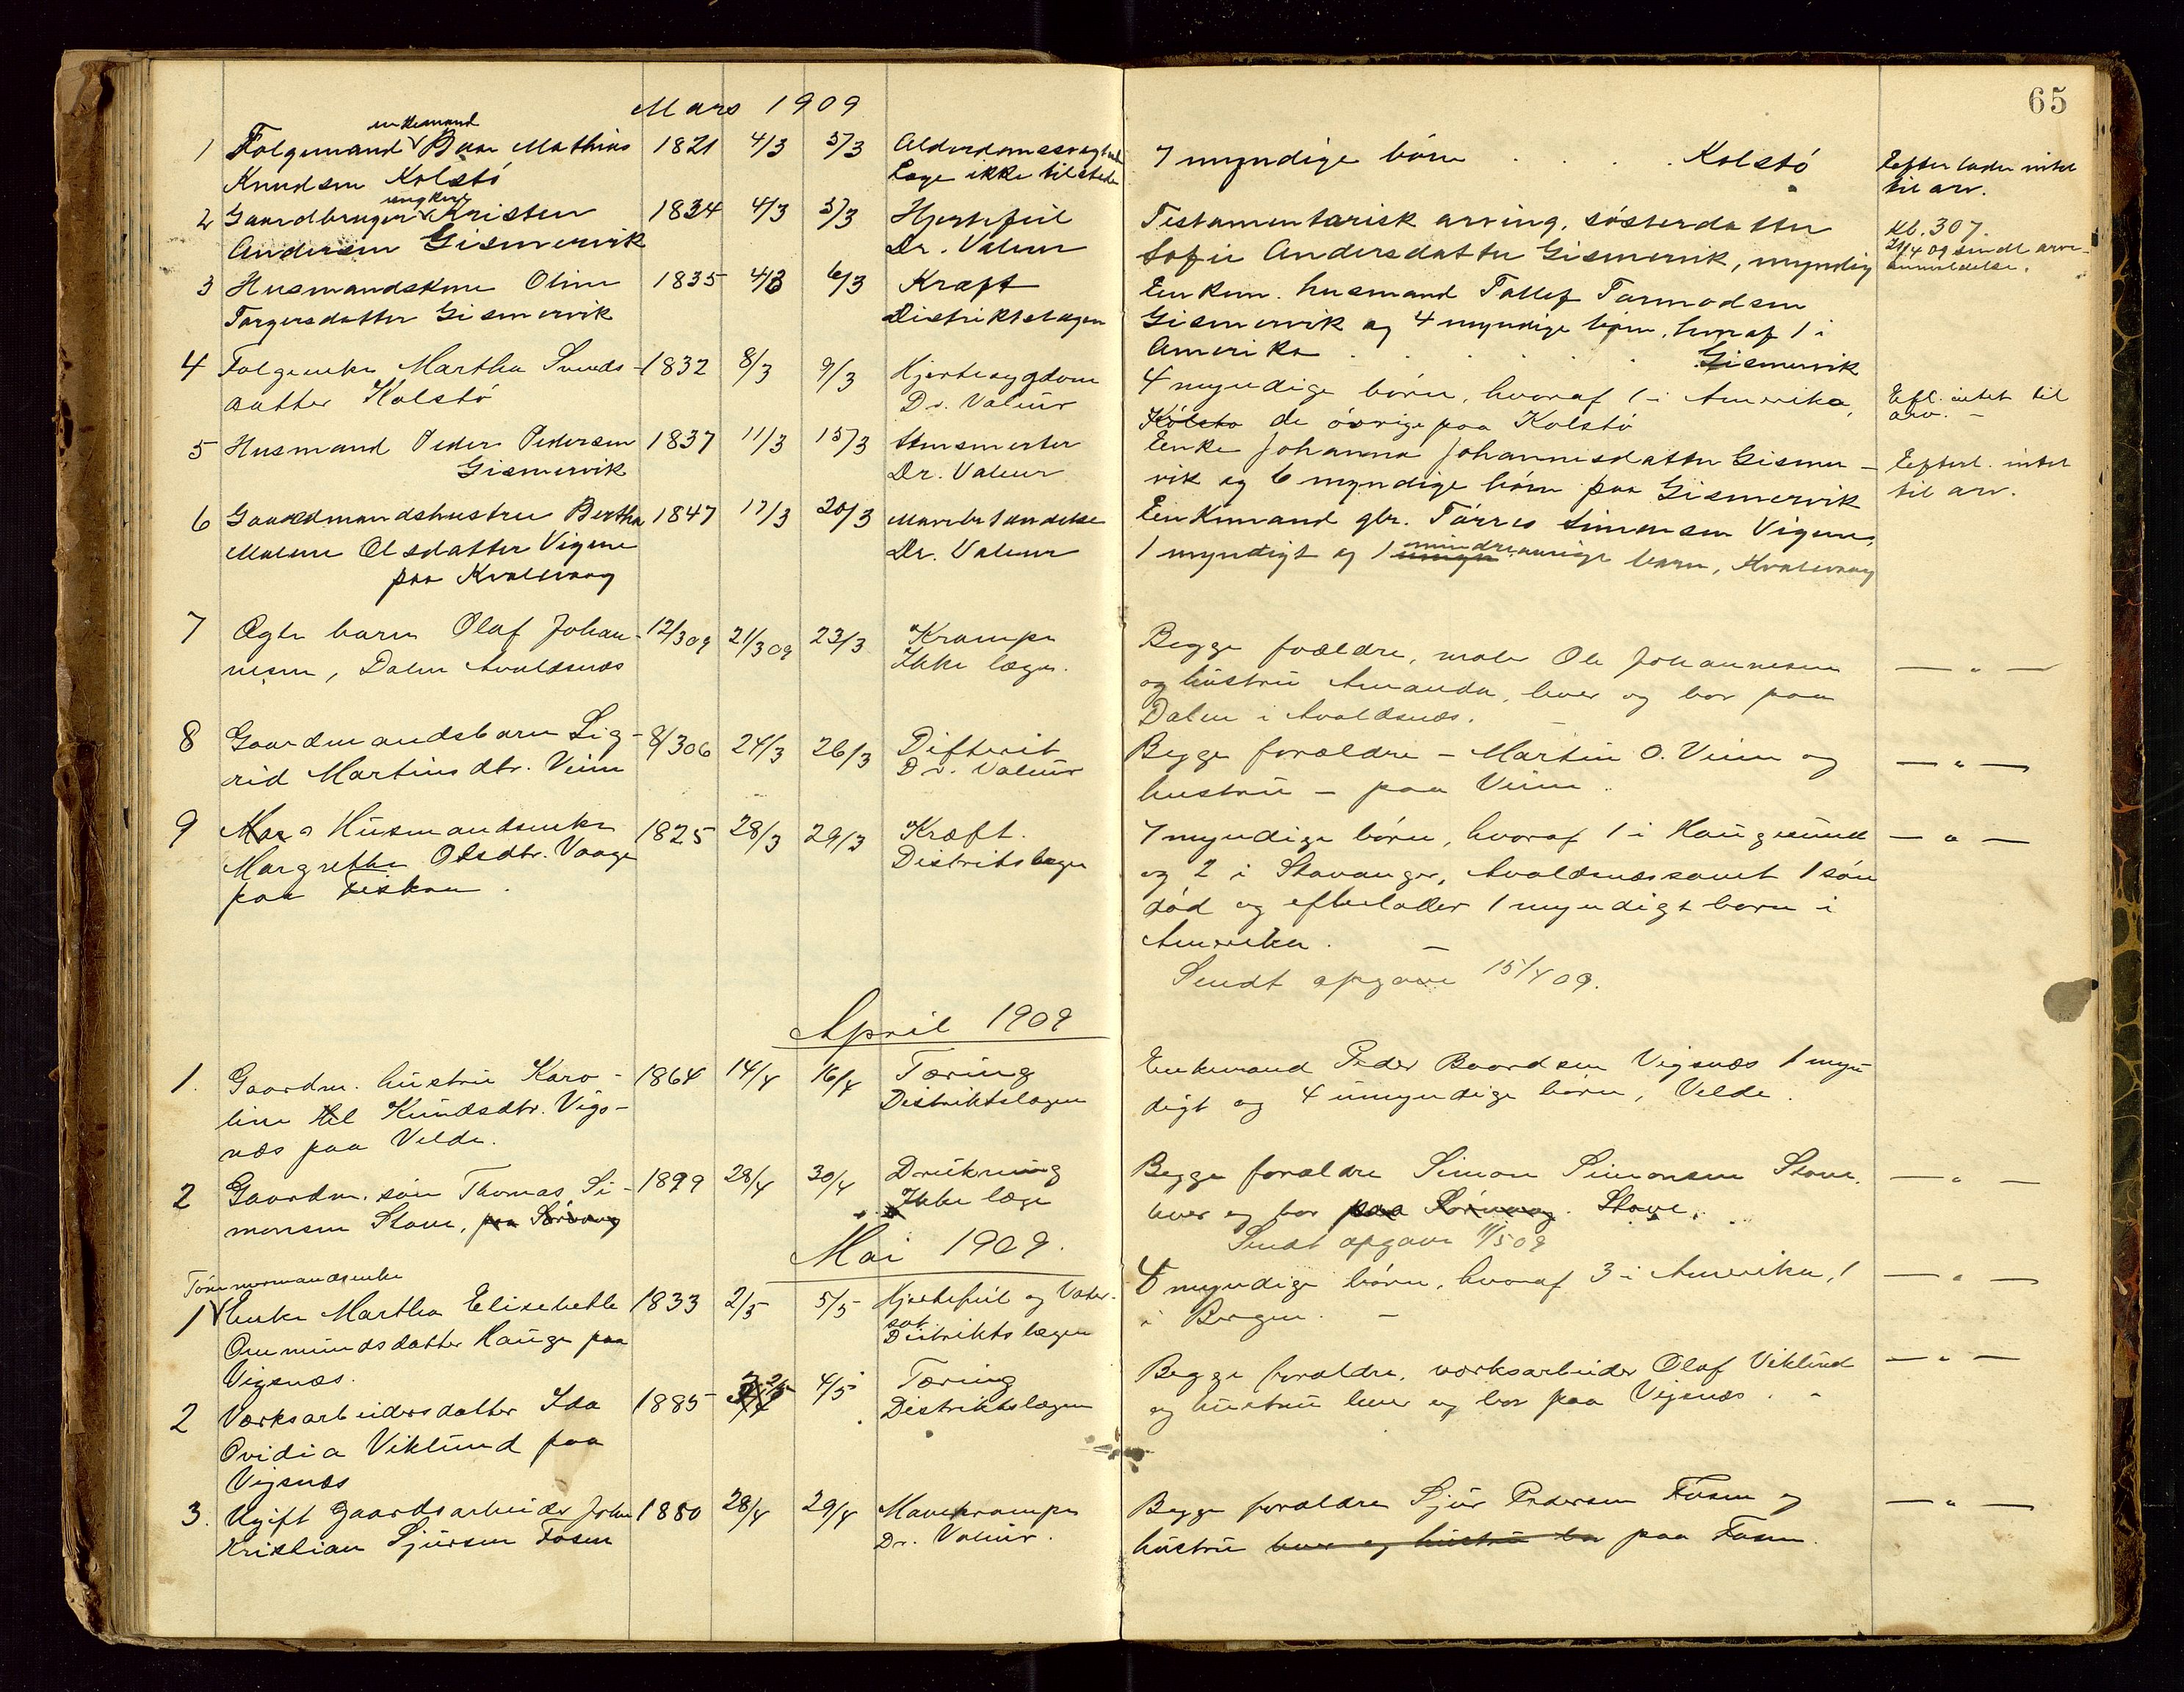 65
Mars 1909
enkemand
1 Folgemand Baar Mathias 1821 4/3 5/3
Knudsen Kolstó
Læge ikke tilstede
7 myndige börn . . . . Kolstó
Efterlader intet
til arv.
ungkarl
2 Gaardbruger Kristen 1834 4/3 5/3 Hjertefeil
Andersen Gismervik Dr. Valeur
Testamentarisk arving, sösterdatter
Sofie Andersdatter Gismervik, myndig
kl. 307.
sendt arve-
anmeldelse.
3 Husmandskone Oline 1835 4/3 6/3 Kræft
Torgersdatter Gismervik Distriktslægen
Enkem. husmand Tollef Tormodsen
Gismervik og 4 myndige börn, hvoraf 1 i
Amerika . . . . . . Gismervik
4 Folgeenke Martha Svends- 1832 8/3 9/3 Hjertesygdom
datter Kolstó Dr. Valeur
4 myndige börn, hvoraf 1 i Amerika,
Kolstó de övrige paa Kolstó
Eft. intet til
arv. -
5 Husmand Peder Pedersen 1837 11/3 15/3
Gismervik Dr. Valeur
Enke Johanna Johannesdatter Gismer-
vik og 6 myndige börn paa Gismervik
Efterl. intet
til arv.
6 Gaardmandshustru Bertha 1847 17/3 20/3
Malene Olsdatter Vigene Dr. Valeur
paa Kvalevaag
Enkemand gbr. Törres Simonsen Vigene,
mindreaarige
1 myndigt og 1 barn, Kvalevaag
7 Ægte barn Olaf Johan- 12/3 09 21/3 09 23/3 Krampe
nesen, Dalen Avaldsnæs Ikke læge.
Begge forældre, maler Ole Johannesen
og hustru Amanda, lever og bor paa
Dalen i Avaldsnæs.
— " —
8 Gaardmandsbarn Sig- 8/3 06 24/3 26/3 Difterit
rid Martinsdtr. Veim Dr. Valeur
Begge forældre - Martin O. Veim og
hustru - paa Veim.
— " —
9 Husmandsenke 1825 28/3 29/3 Kræft.
Margrethe Olsdtr. Vaage Distriktslægen
paa Fiskaa.
7 myndige börn, hvoraf 1 i Haugesund
og 2 i Stavanger, Avaldsnæs samt 1 sön
död og efterlader 1 myndigt barn i
Amerika. -
Sendt opgave 15/4 09.
— " —
April 1909
1. Gaardm. hustru Karo- 1864 14/4 16/4 Tæring
line Knudsdtr. Vigs- Distriktslægen
næs paa Velde.
Enkemand Peder Baardsen Vigsnæs 1 myn-
digt og 4 umyndige börn, Velde.
2 Gaardm. sön Thomas Si- 1899 28/4 30/4 Drukning
monsen Stave, paa Ikke læge
Begge forældre Simon Simonsen Stave,
lever og bor paa Stave.
Sendt opgave 11/5 09
— " —
Mai 1909.
Tömmermandsenke
1 Enke Martha Elisebeth 1833 2/5 5/5 Hjertefeil og Vater-
sot
Ommundsdatter Hauge paa Distriktslægen
Vigsnæs.
myndige börn, hvoraf 3 i Amerika, 1
i Bergen. -
— " —
2 Værksarbeidersdatter Ida 1885 2/5 4/5 Tæring
Ovidia Viklund paa Distriktslægen
Vigsnæs
Begge forældre, værksarbeider Olaf Viklund
og hustru lever og bor paa Vigsnæs.
— " —
3. Ugift Gaardsarbeider John 1880 28/4 29/4 Mavekrampe
Kristian Sjursen Fosen Dr. Valeur.
Begge forældre Sjur Pedersen Fosen og
hustru lever og hustru bor paa Fosen.
— " —